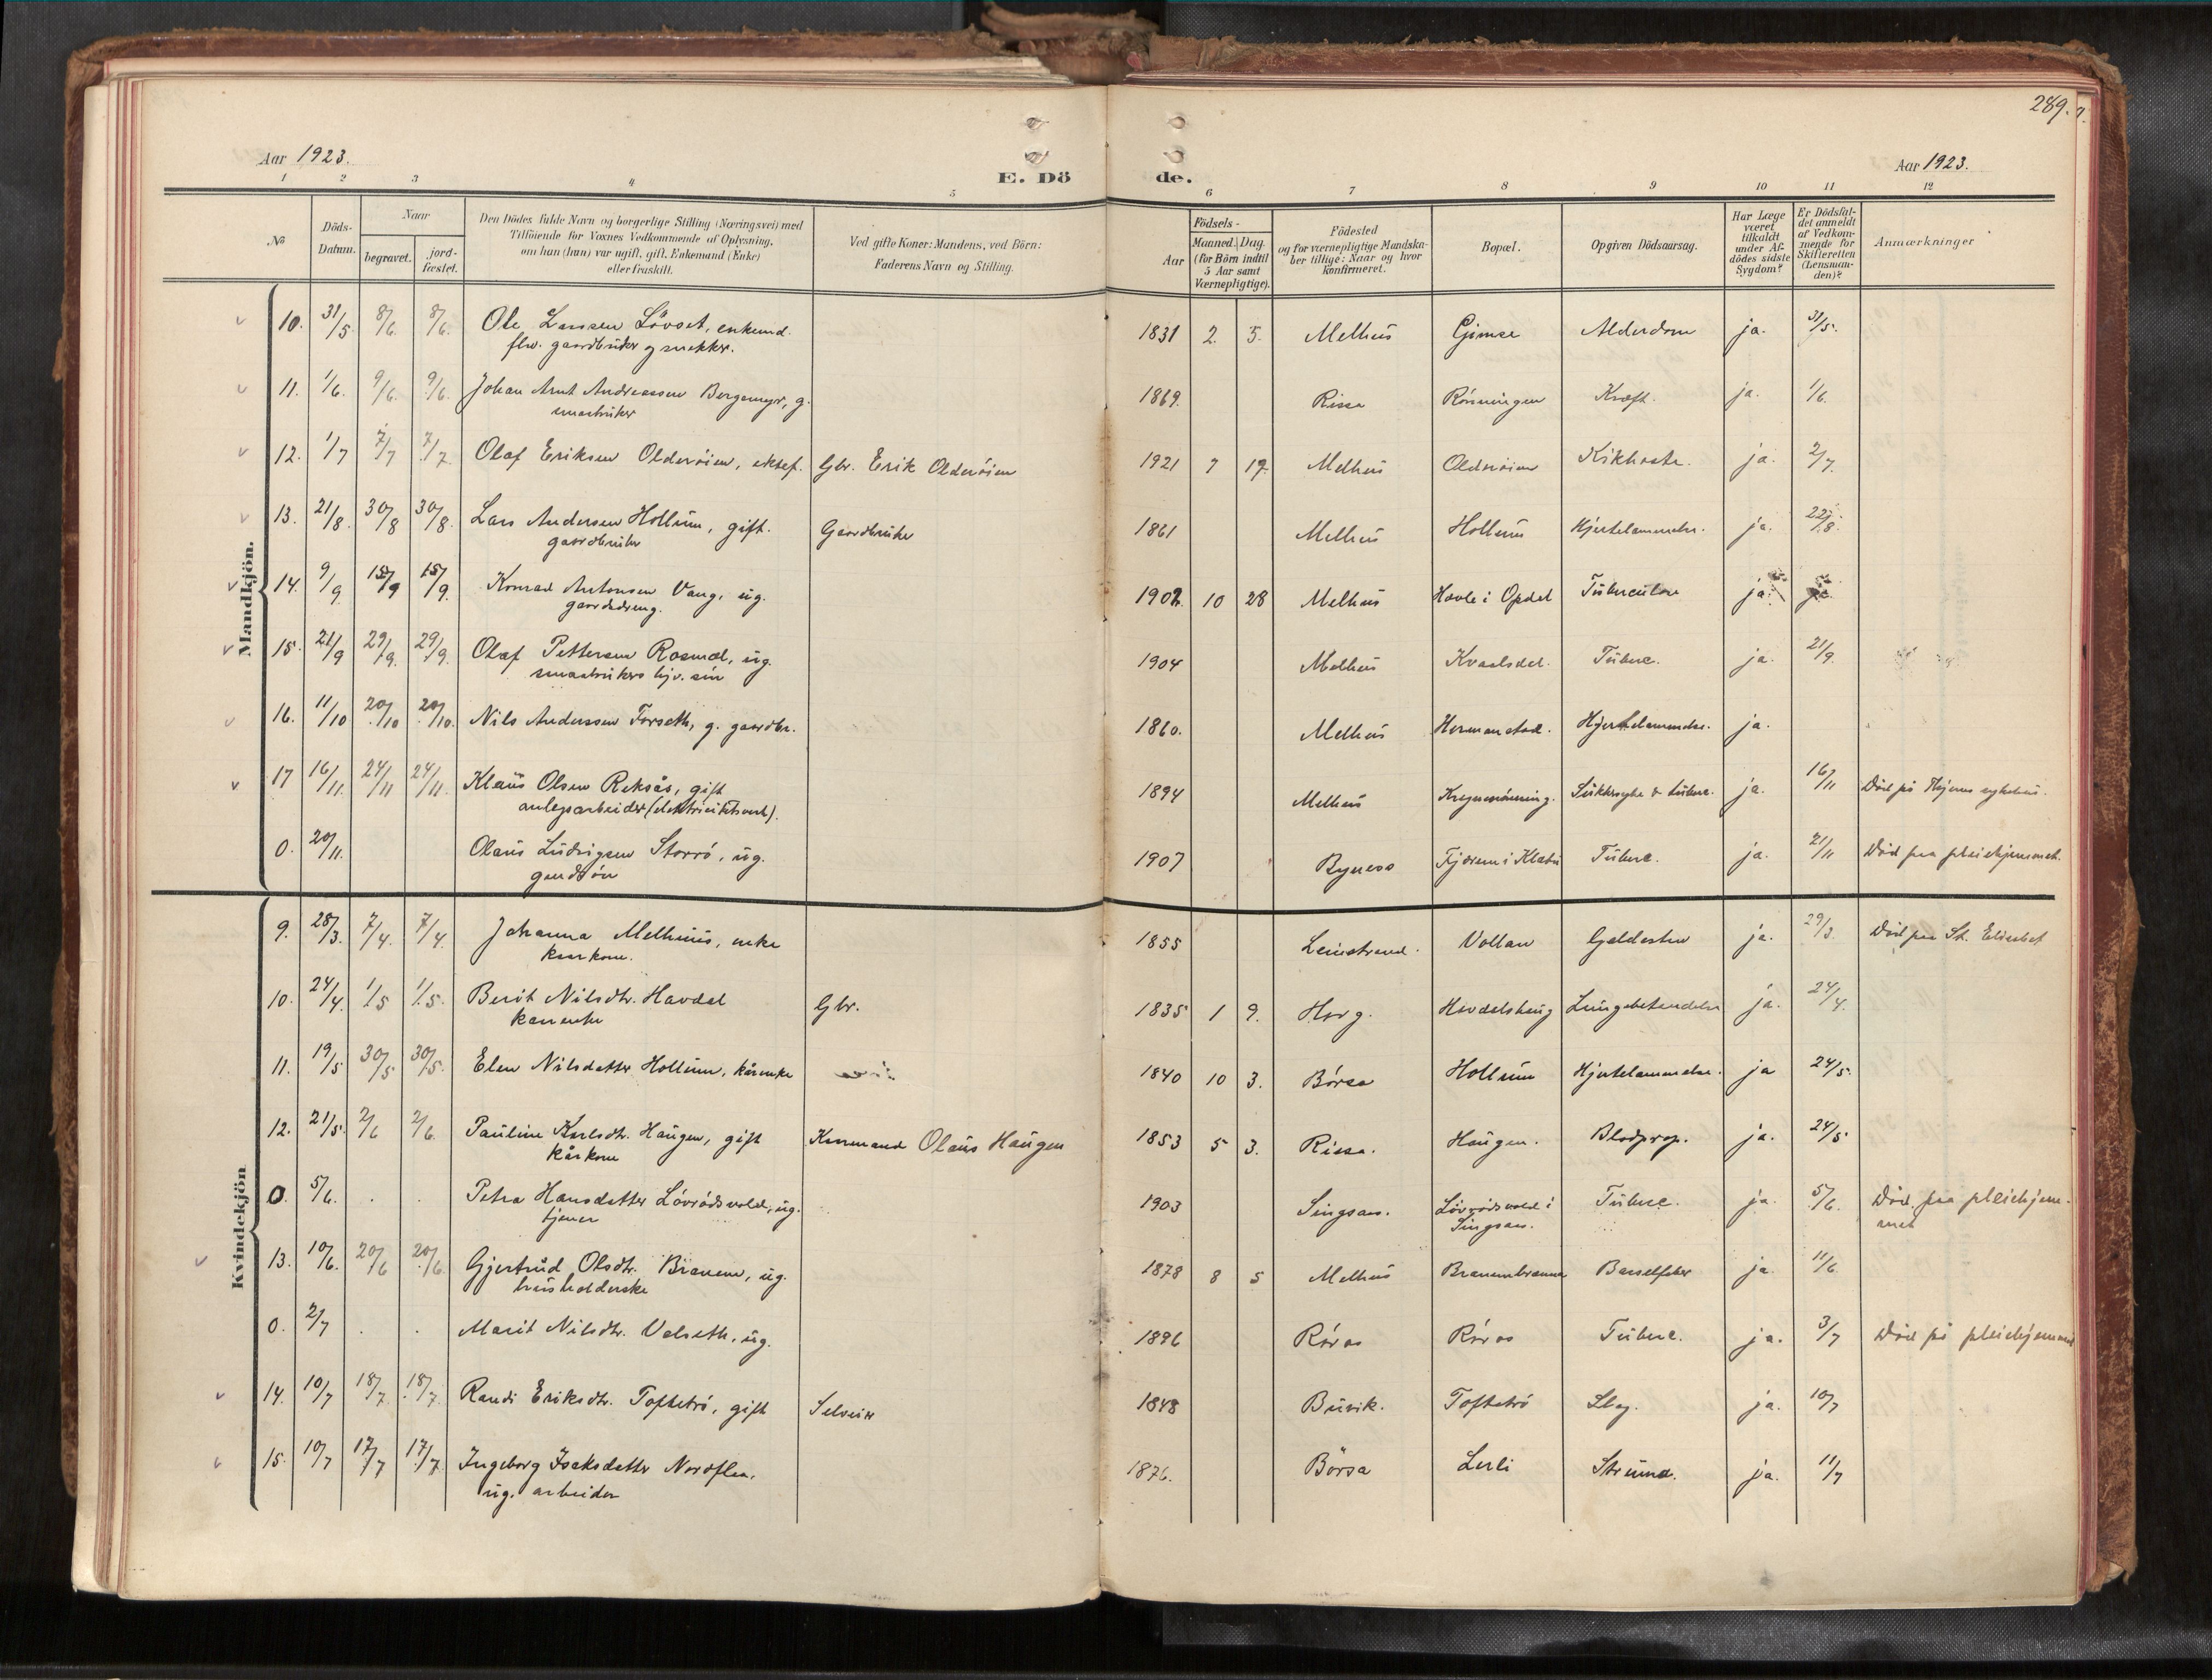 289.
Aar 1923.
E. Dö
de.
Aar 1923.
1 2 3 4 5 6 7 8 9 10 11 12
No
Döds-
Datum.
Naar
begravet.
jord-
fæstet.
Den Dödes fulde Navn og borgerlige Stilling (Næringsvei) med
Tilföiende for Voxnes Vedkommende af Oplysning,
om han (hun) var ugift, gift, Enkemand (Enke)
eller fraskilt.
Ved gifte Koner: Mandens, ved Börn:
Faderens Navn og Stilling.
Födsels-
Aar
Maaned. Dag.
(for Börn indtil
5 Aar samt
Værnepligtige).
Födested
og for værnepligtige Mandska-
ber tillige: Naar og hvor
konfirmeret.
Bopæl.
Opgiven Dödsaarsag.
Har Læge
været
tilkaldt
under Af-
dödes sidste
Sygdom?
Er Dödsfal-
det anmeldt
af Vedkom-
mende for
Skifteretten
(Lensman-
den)?
Anmærkninger
Mandkjön.
10. 31/5 8/6. 8/6. Ole Larssen Lövset, enkemd. 1831 2. 5. Melhus Gimse Alderdom ja. 31/5.
flw. gaardbruker og snekker.
11. 1/6. 9/6. 9/6. Johan Arnt Andreassen Bergsmyr, g. 1869. Rissa Rönningen Kræft. ja. 1/6.
smaabruker
12. 1/7 7/7 7/7. Olaf Eriksen Olderöien, ektef. Gbr. Erik Olderöien 1921 7 19. Melhus Olderöien Kikhoste. ja. 2/7.
13. 21/8. 30/8 30/8. Lars Andersen Hollum, gift. Gaardbruker 1861 Melhus Hollum Hjertelammelse. ja. 22/8.
gaardbruker
14. 9/9 15/9 15/9. Konrad Antonsen Vang, ug. 1902. 10 28 Melhus Hovle i Opdal Tuberculose ja.
gaardsdreng.
15. 21/9 29/9. 29/9. Olaf Pettersen Rosmæl, ug. 1904 Melhus Kvaalsdal. Tuberc. ja. 21/9.
smaabrukers hjv. sön
16. 11/10 20/10 20/10. Nils Anderssen Forseth, g. gaardbr. 1860. Melhus Hermanstad. Hjertelammelse. ja.
17 16/11. 24/11 24/11. Klaus Olsen Reksås, gift 1894 Melhus Sukkersyke & tuberc. ja. 16/11 Död på Hjorns sykehus.
anlegsarbeider (elektricitetsverk).
0. 20/11. Olaus Ludvigsen Storrö, ug. 1907 Byness Fjærem i Klæbu Tuberc. ja. 21/11 Död paa pleiehjemmet.
gaardssön
Kvindekjön
9. 28/3. 7/4. 7/4. Johanna Melhuus, enke 1855 Leinstrand. Vollan Galdesten ja. 29/3. Död paa St. Elisabet
kaarkone.
10. 24/4. 1/5 1/5. Berit Nilsdtr. Havdal Gbr. 1835 1 9. Horg. Havdalshaug Lungebetendelse ja. 24/4.
kaarenke
11. 19/5 30/5 30/5. Elen Nilsdatter Hollum, kårenke 1840 10 3. Börsa Hollum Hjertelammelse. ja 24/5.
12. 21/5. 2/6 2/6. Pauline Karlsdtr. Haugen, gift Kaarmand Olaus Haugen 1853 5 3. Rissa. Haugen. Blodprop. ja. 24/5
kårkone
0. 5/6. . . Petra Hansdatter Lövrödsvold, ug. 1903 Singsaas. Lövrödsvold i Tuberc. ja. 5/6. Död paa pleiehjem-
tjener Singsaas. met
13. 10/6. 20/6 20/6. Gjertrud Olsdtr. Brauem, ug. 1878 8 5 Melhus Barselfeber ja. 11/6.
husholderske
0. 2/7 . . Marit Nilsdtr. Valseth, ug. 1896 Röros Röros Tuberc. ja. 3/7 Död på pleiehjemmet
14. 10/7 18/7 18/7. Randi Eriksdtr. Toftetrö, gift Selveier 1848 Buvik. Toftetrö Slag. ja. 10/7
15. 10/7 17/7 17/7. Ingeborg Isaksdatter Nordflea, 1876. Börsa Lerli Struma. ja. 11/7
ug. arbeider